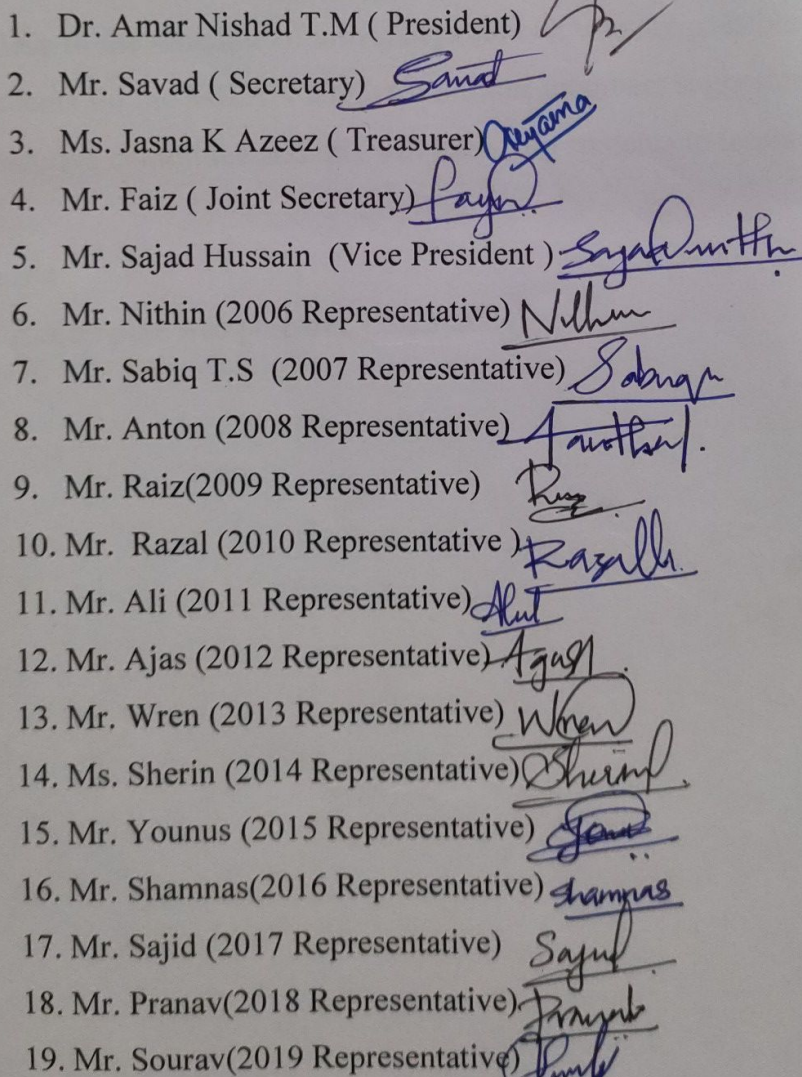 1. Dr. Amar Nishad T.M ( President)
2. Mr. Savad ( Secretary)
3. Ms. Jasna K Azeez ( Treasurer)
4. Mr. Faiz ( Joint Secretary)
5. Mr. Sajad Hussain (Vice President )
6. Mr. Nithin (2006 Representative)
7. Mr. Sabiq T.S (2007 Representative)
8. Mr. Anton (2008 Representative)
9. Mr. Raiz(2009 Representative)
10. Mr. Razal (2010 Representative )
11. Mr. Ali (2011 Representative)
12. Mr. Ajas (2012 Representative)
13. Mr. Wren (2013 Representative)
14. Ms. Sherin (2014 Representative)
15. Mr. Younus (2015 Representative)
16. Mr. Shamnas(2016 Representative) shamnas
17. Mr. Sajid (2017 Representative)
18. Mr. Pranav(2018 Representative)
19. Mr. Sourav(2019 Representative)